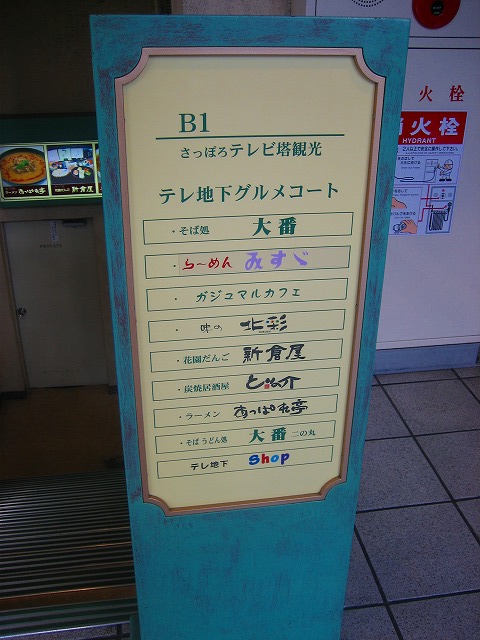 B1
さっぽろテレビ塔観光
テレ地下グルメコート
・そば処 大番
・らーめん みすゞ
・ガジュマルカフェ
・味の 北彩
・花園だんご 新倉屋
・炭焼居酒屋 とも介
・ラーメン あっぱれ亭
・そばうどん処 大番 二の丸
テレ地下 Shop
ラーメン あっぱれ亭
花園だんご 新倉屋
火栓
消火栓
HYDRANT